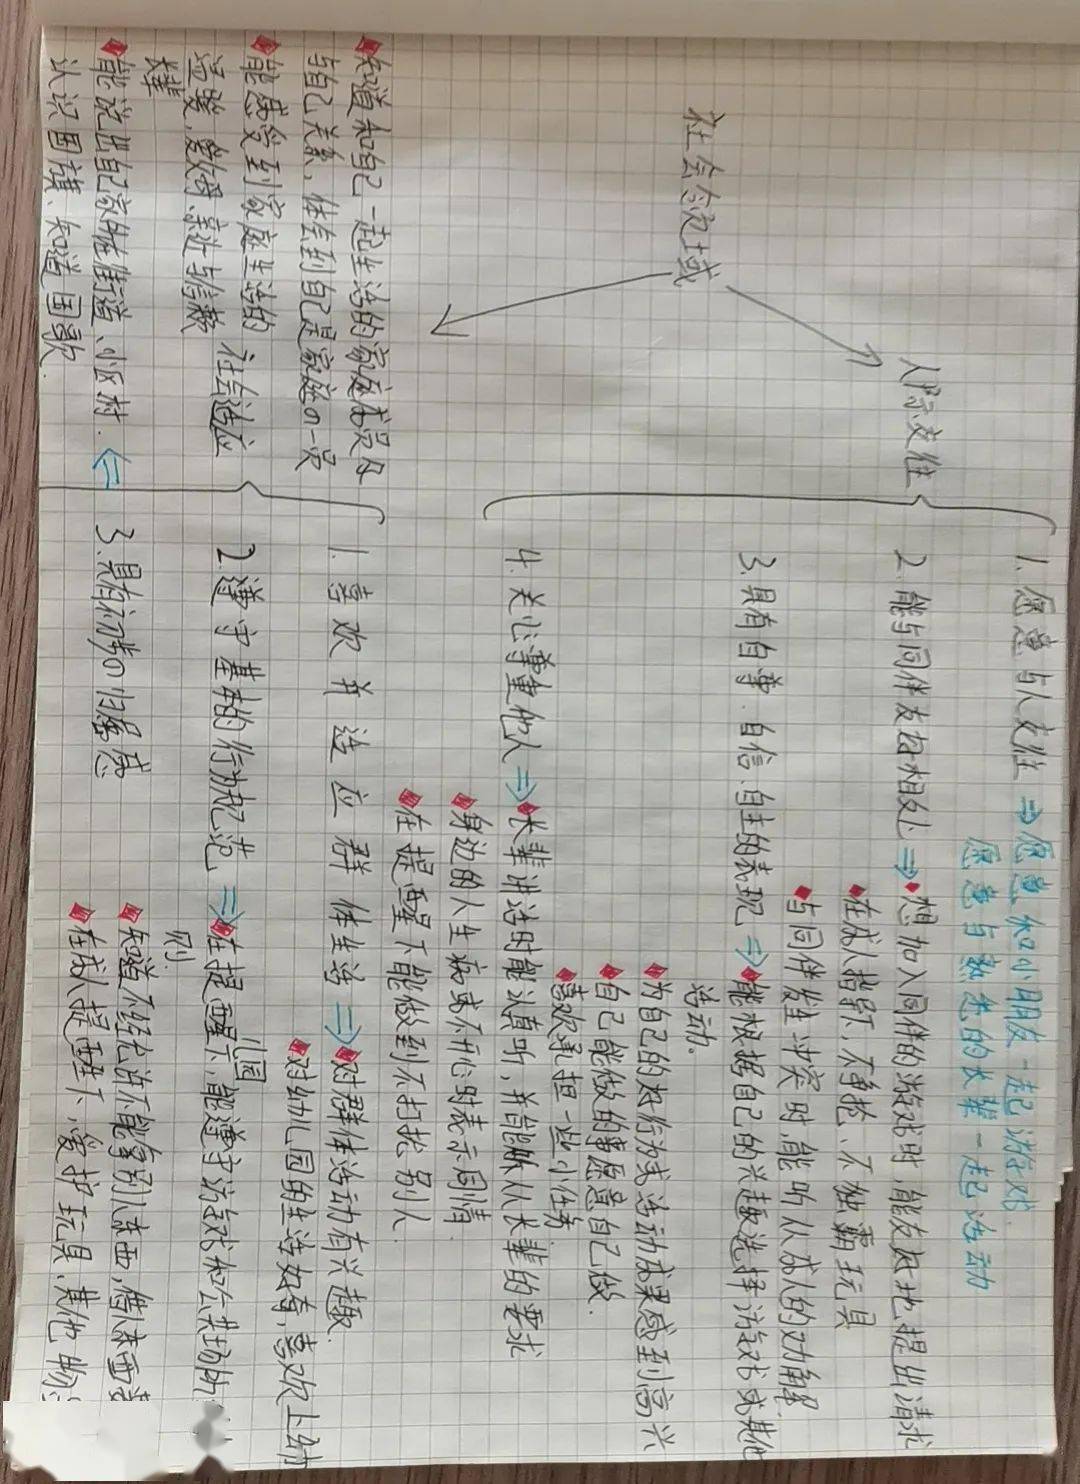 社会领域
人际交往
1. 愿意与人交往 ⇒ 愿意和小朋友一起游戏.
愿意与熟悉的长辈一起活动
2. 能与同伴友好相处 ⇒ 想加入同伴的游戏时,能友好地提出请求
在成人指导下,不争抢、不独霸玩具
与同伴发生冲突时能听从成人的劝解
3. 具有自尊、自信、自主的表现 ⇒ 能根据自己的兴趣选择游戏或其他
活动.
为自己的好行为或活动成果感到高兴
自己能做的事愿意自己做.
喜欢承担一些小任务
4. 关心尊重他人 ⇒ 长辈讲话时能认真听,并能服从长辈的要求
身边的人生病或不开心时表示同情
在提醒下能做到不打扰别人.
社会适应
1. 喜欢并适应群体生活 ⇒ 对群体活动有兴趣.
对幼儿园的生活好奇,喜欢上幼
儿园
2. 遵守基本的行为规范 ⇒ 在提醒下,能遵守游戏和公共场所
则
知道不经允许不能拿别人东西,借东西
在成人提醒下,爱护玩具、其他物
3. 具有初步的归属感
知道和自己一起生活的家庭成员及
与自己关系,体会到自己是家庭的一员
能感受到家庭生活的
温暖,爱父母,亲近与信赖
长辈
能说出自己家所在街道、小区村.
认识国旗、知道国歌.